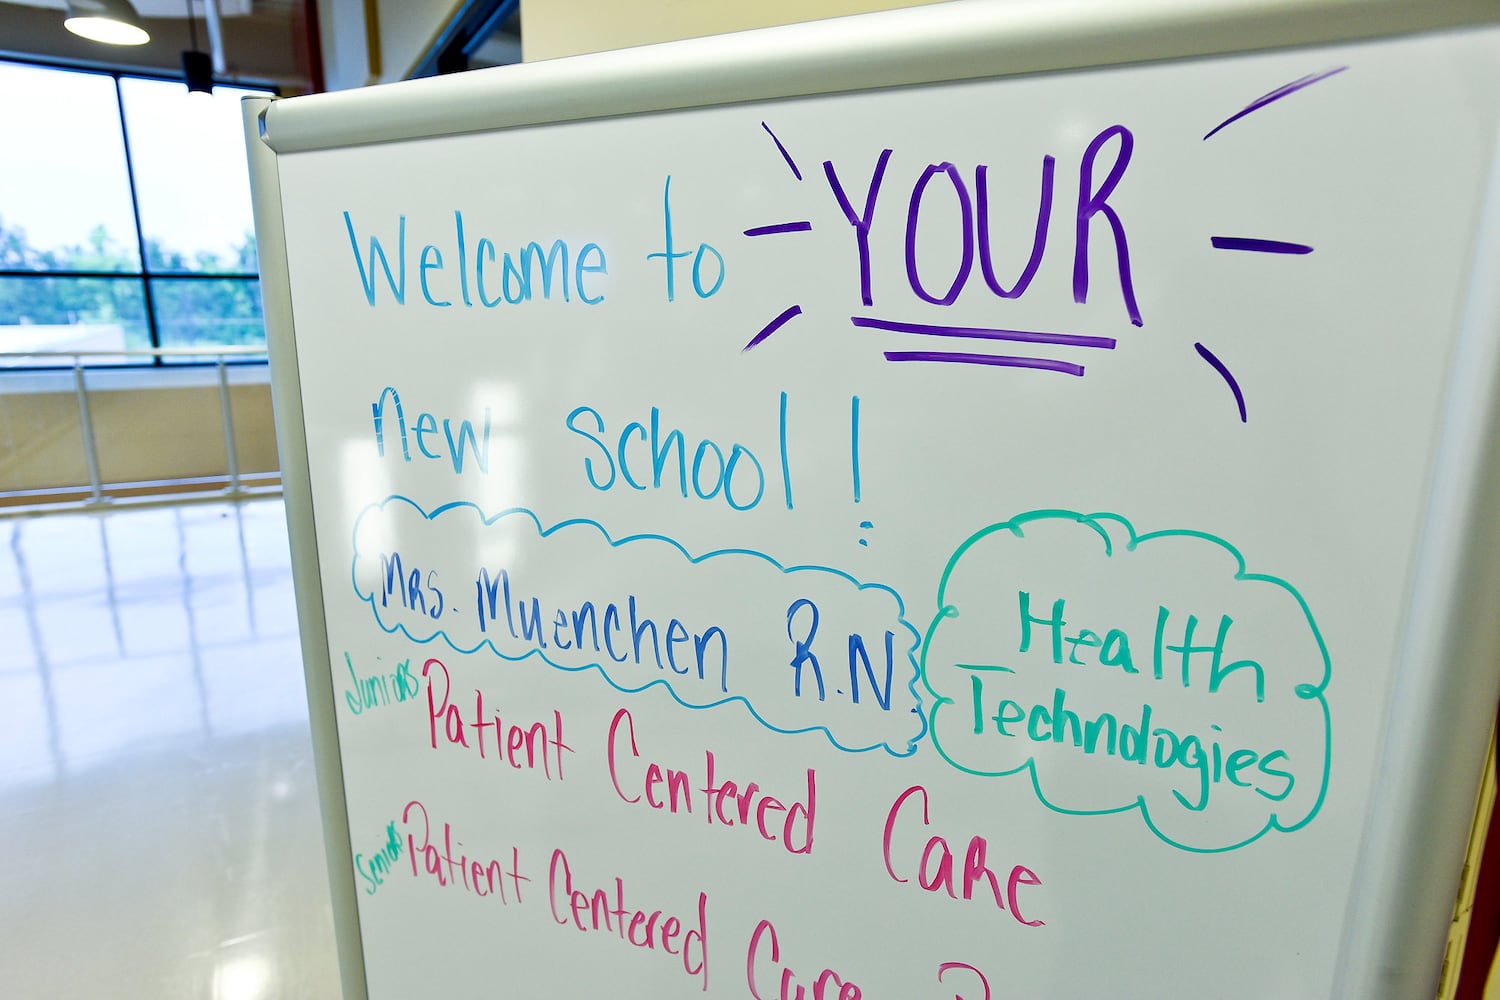 Welcome to YOUR
new school!
Mrs. Muenchen R.N.
Health
Technologies
Juniors Patient Centered Care
Seniors Patient Centered Care